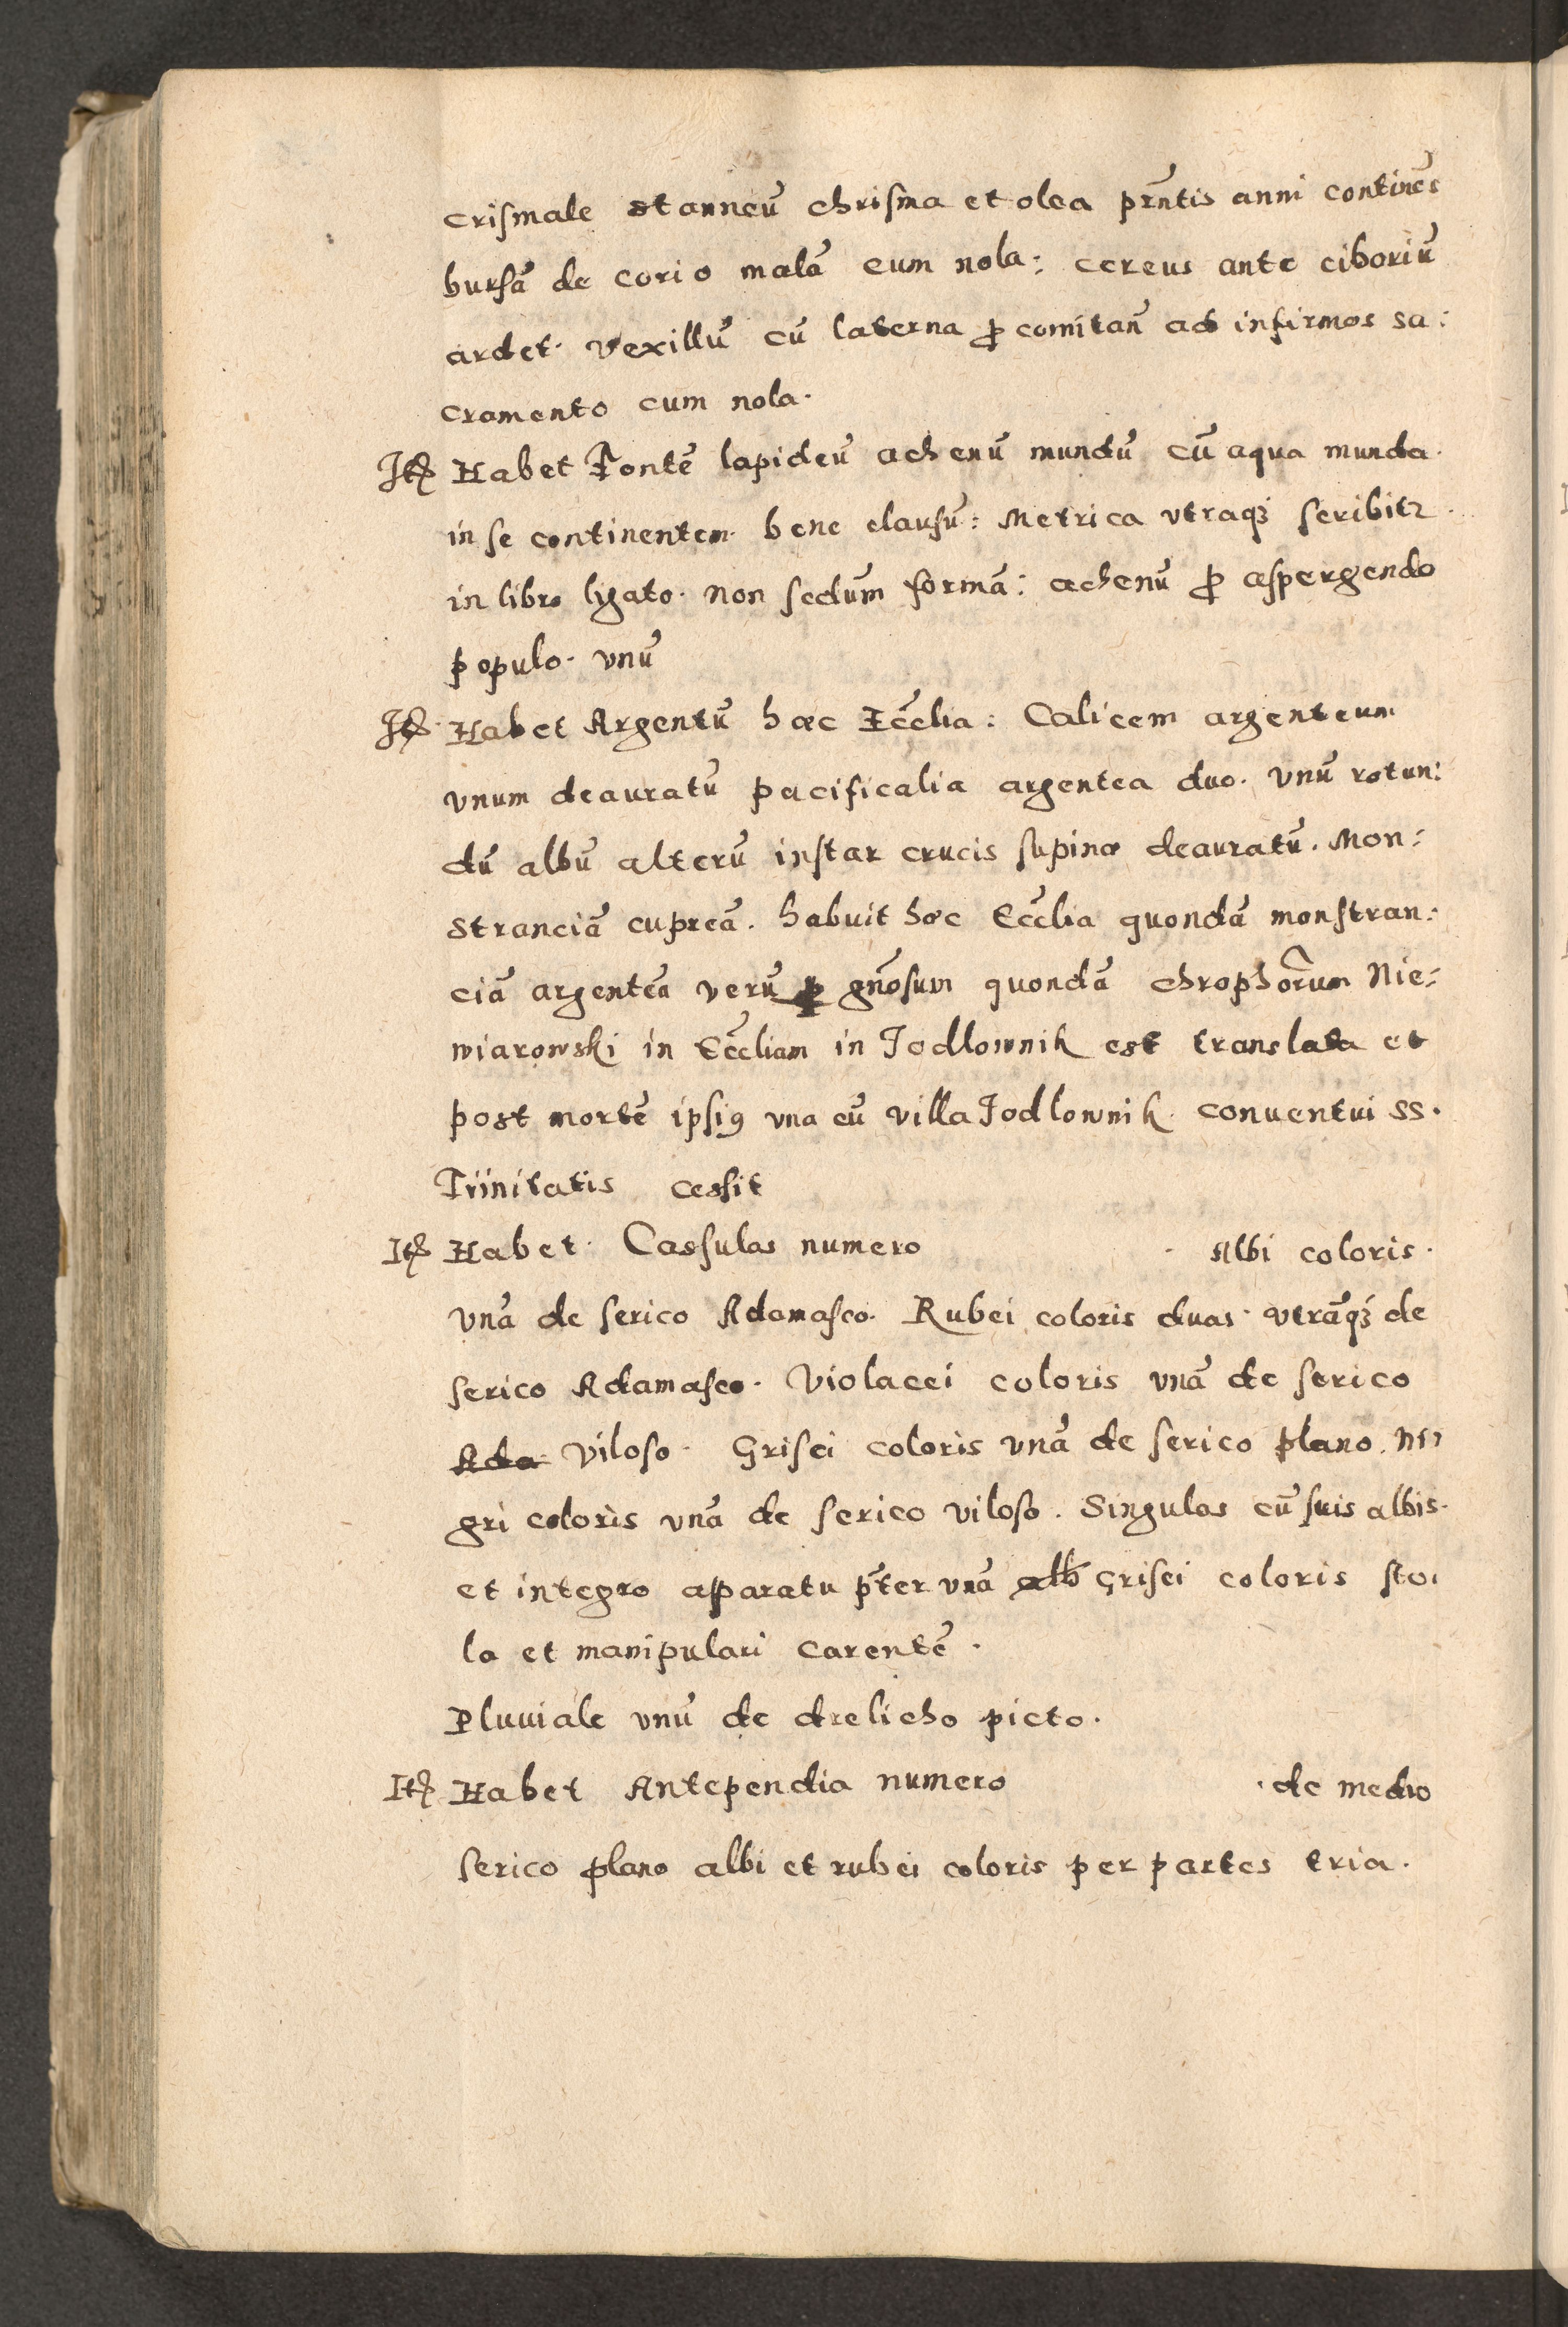 crismale stanneū chrisma et olea prn̄tis anni continēs
bursā de corio malā cum nola: cereus ante ciboriū
ardet. vexillū cū laterna ꝓ comitan̄ ad infirmos sa:
cramento cum nola.
Itē Habet Fontē lapideū achenū mundū cū aqua munda
in se continentem bene clausū: Metrica vtraqꝫ scribitr
in libro ligato. non secdum̄ formā: achenū ꝓ aspergendo
populo. vnū
Itē Habet Argentū hæc Eccl̄ia: Calicem argenteum
vnum deauratū pacificalia argentea duo. vnū rotun:
dū albū alterū instar crucis supinæ deauratū. Mon:
stranciā cupreā. habuit hæc Eccl̄ia quondā monstran:
ciā argenteā verū ꝑ gn̄osum quondā chrophorum̄ Nie:
wiarowski in Eccl̄iam in Jodlownik est translata et
post mortē ipsiꝰ vna cū villa Jodlownik conuentui ss.
Trinitatis cessit
Itē Habet. Cassulas numero . Albi coloris.
vnā de serico Adamasco. Rubei coloris duas. vtrāqꝫ de
serico Adamasco. Violacei coloris vnā de serico
Ada viloso. Grisei coloris vnā de serico plano. Ni
gri coloris vnā de serico viloso. Singulas cū suis albis.
et integro apparatu p̄ter vnā alb grisei coloris sto:
la et manipulari carentē.
Pluuiale vnū de drelicho picto.
Itē Habet Antependia numero . de medio
serico plano albi et rubei coloris per partes tria.